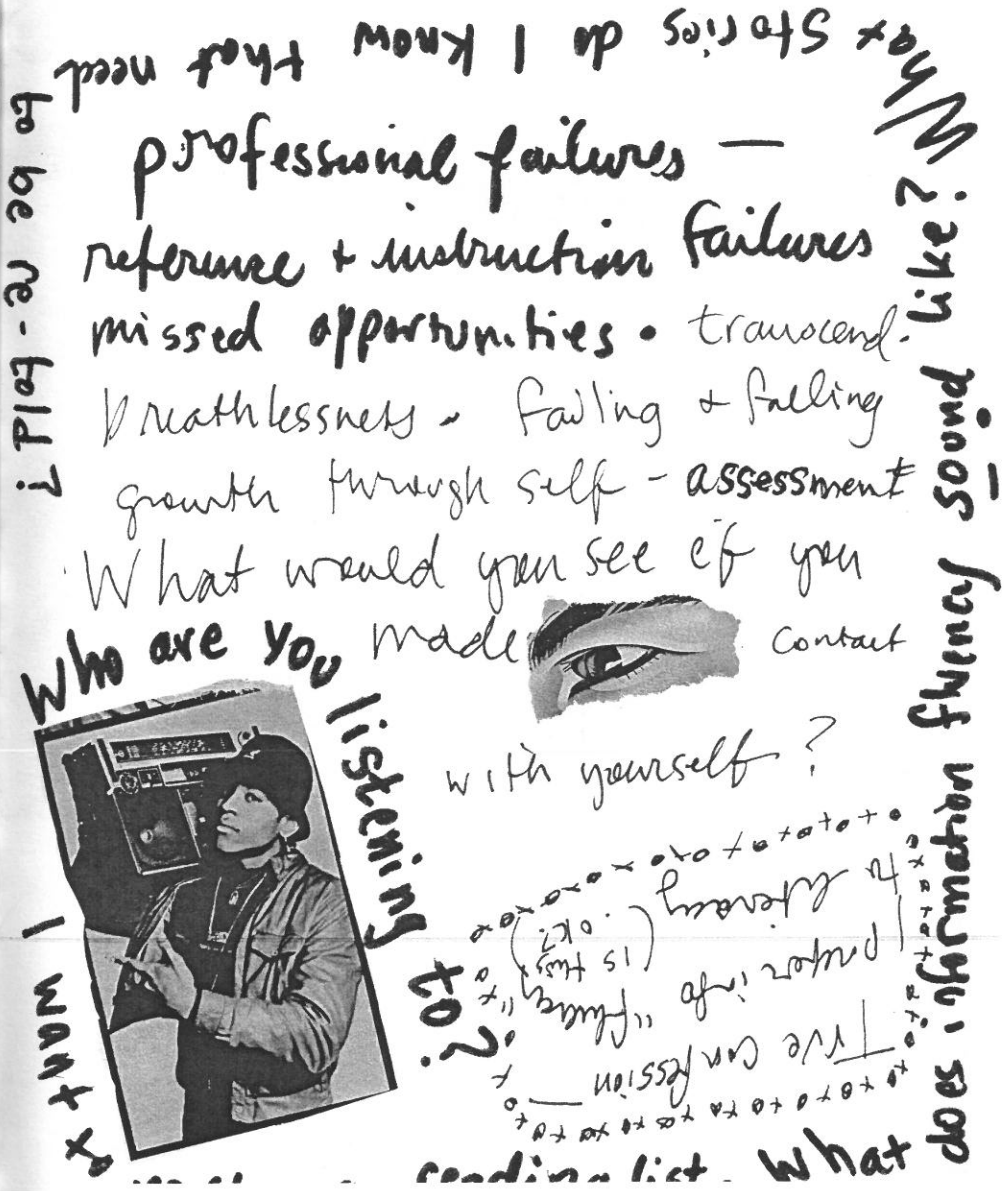 What stories do I know that need
to be re-told?
professional failures —
reference + instruction failures
missed opportunities • transcend.
breathlessness. failing + falling
growth through self - assessment
What would you see if you
made contact
with yourself?
Who are you listening to?
True confession —
I prefer info "fluency"
to literacy (is this ok?)
I want to
reading list.
What
does information fluency sound like?